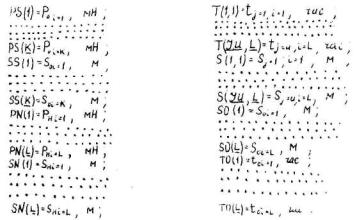 PS(1)=Pₒᵢ₌₁, МН;
PS(K)=Pₒᵢ₌ₖ, МН;
SS(1)=Sₒᵢ₌₁, М;
SS(K)=Sₒᵢ₌ₖ, М;
PN(1)=Pₙᵢ₌₁, МН;
PN(L)=Pₙᵢ₌L, МН;
SN(1)=Sₙᵢ₌₁, М;
SN(L)=Sₙᵢ₌L, М;
T(1,1)=tⱼ₌₁,ᵢ₌₁, час;
T(JU,L)=tⱼ₌ᵤ,ᵢ₌L,
S(1,1)=Sⱼ₌₁,ᵢ₌₁, М;
S(JU,L)=Sⱼ₌ᵤ,ᵢ₌L, М;
SO(1)=Sₒᵢ₌₁, М;
SO(L)=Sₒᵢ₌L, М
TO(1)=tₒᵢ₌₁, час;
TO(L)=tₒᵢ₌L,